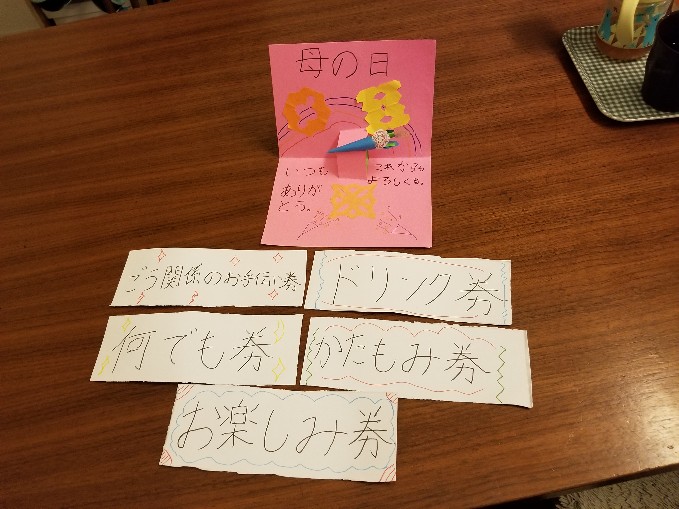 母の日
いつも
ありが
とう。
これからも
よろしくね。
ごう関係のお手伝い券
ドリンク券
何でも券
かたもみ券
お楽しみ券